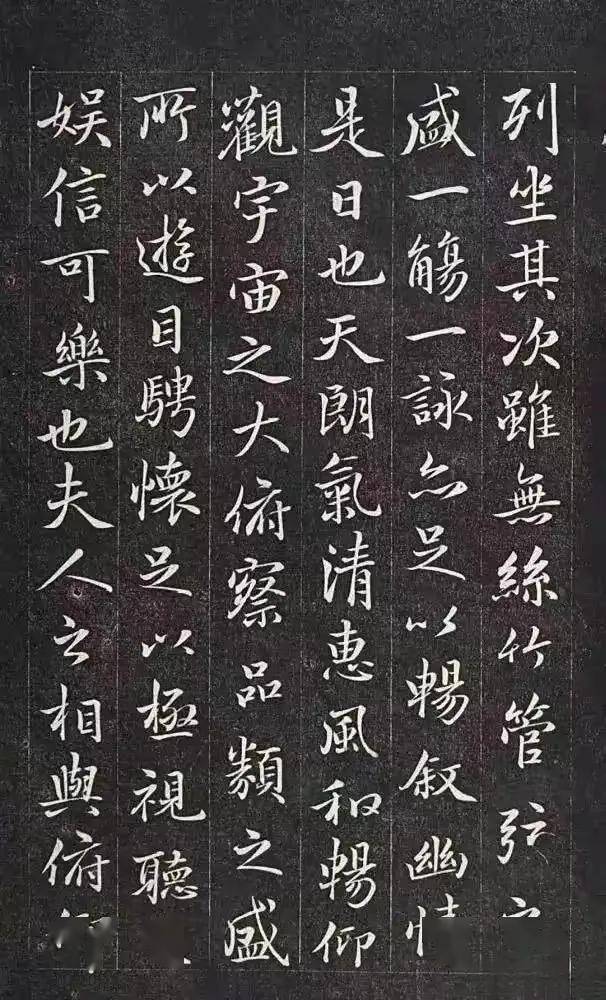 列坐其次雖無絲竹管弦
盛一觴一詠亦足以暢敘幽情
是日也天朗氣清惠風和暢仰
觀宇宙之大俯察品類之盛
所以遊目騁懷足以極視聽
娛信可樂也夫人之相與俯